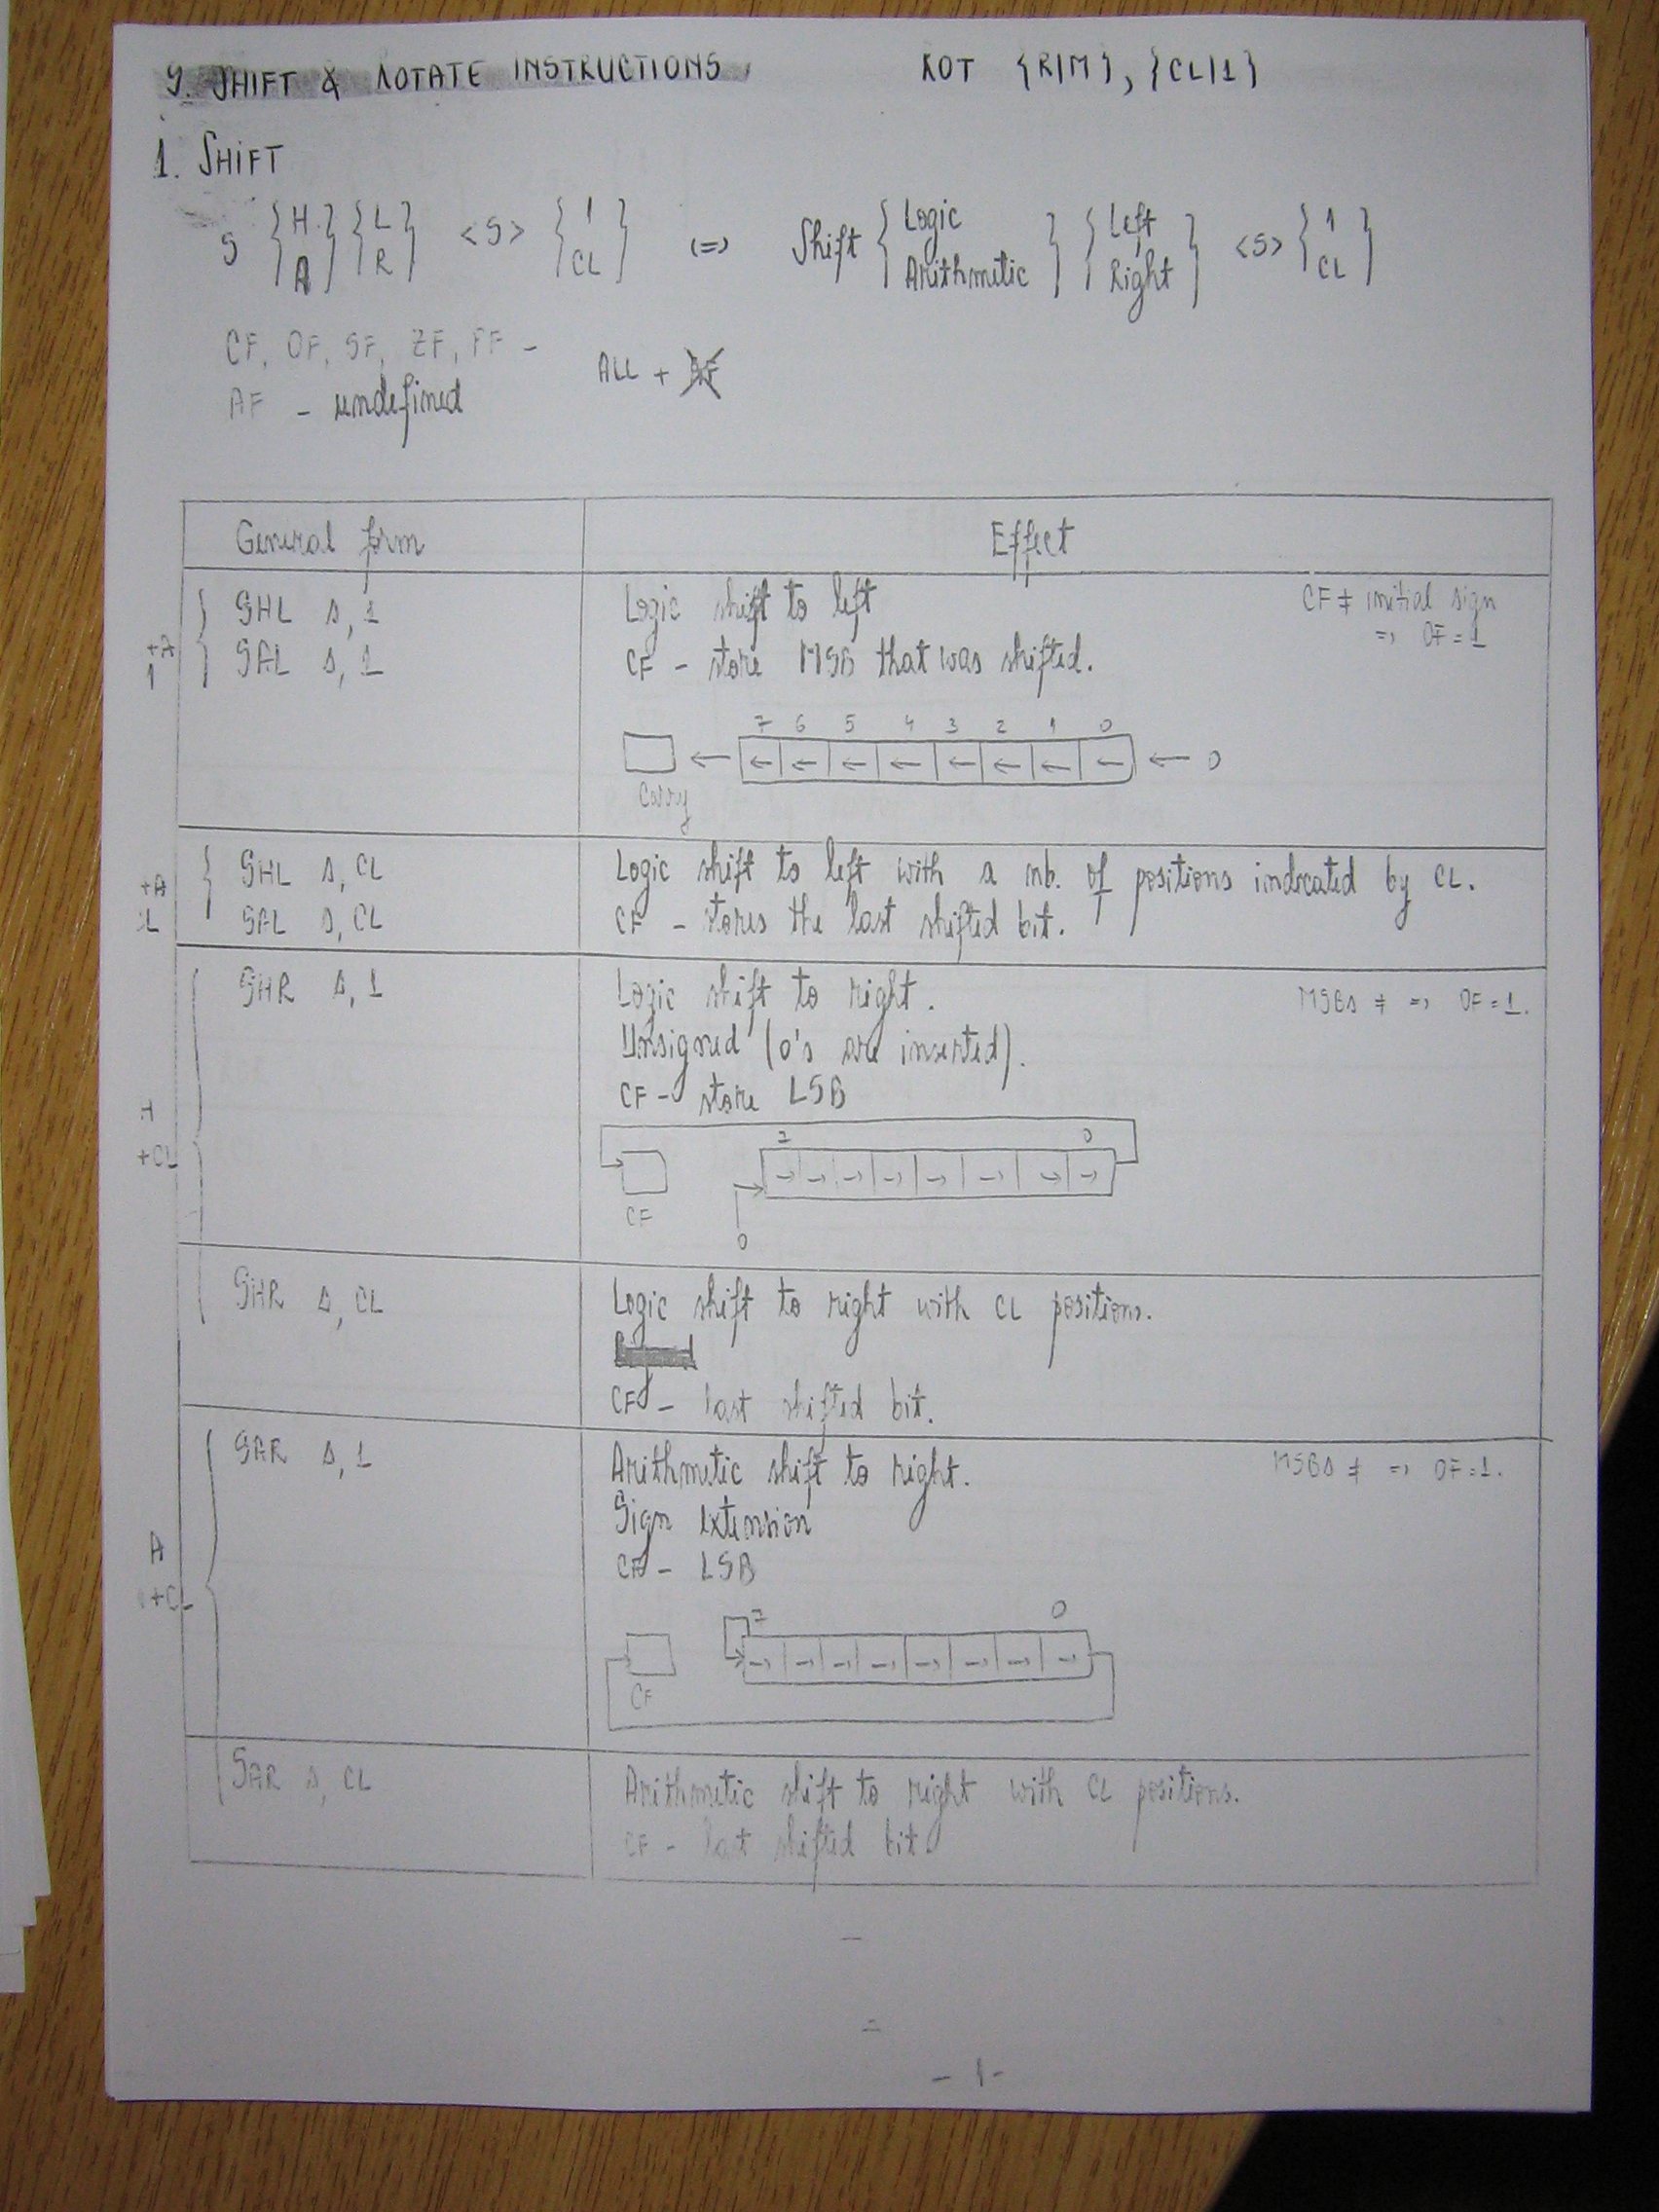 9. SHIFT & ROTATE INSTRUCTIONS ROT {R|M}, {CL|1}
1. SHIFT
S {H A} {L R} <S> {1 CL} (=) Shift {Logic Arithmetic} {Left Right} <S> {1 CL}
CF, OF, SF, ZF, PF -
AF - undefined ALL + AF
General form Effect
SHL s, 1 Logic shift to left CF ≠ initial sign
=> OF = 1
+A SAL s, 1 CF - store MSB that was shifted.
1
7 6 5 4 3 2 1 0
← ← ← ← ← ← ← ← ← ← 0
Carry
+A SHL s, CL Logic shift to left with a nb. of positions indicated by CL.
CL SAL s, CL CF - stores the last shifted bit.
SHR s, 1 Logic shift to right. MSBs ≠ => OF = 1.
Unsigned (0's are inserted).
CF - store LSB
H
+CL
7 0
CF
0
SHR s, CL Logic shift to right with CL positions.
CF - last shifted bit.
SAR s, 1 Arithmetic shift to right. MSBs ≠ => OF = 1.
Sign extension
A CF - LSB
1+CL
7 0
CF
SAR s, CL Arithmetic shift to right with CL positions.
CF - last shifted bit.
- 1 -